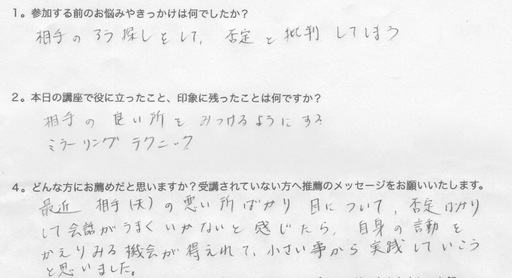 1。参加する前のお悩みやきっかけは何でしたか？
相手のあら探しをして、否定と批判してしまう
2。本日の講座で役に立ったこと、印象に残ったことは何ですか？
相手の良い所をみつけるようにする
ミラーリングテクニック
4。どんな方にお薦めだと思いますか？受講されていない方へ推薦のメッセージをお願いいたします。
最近 相手(夫)の悪い所ばかり目について、否定ばかり
して会話がうまくいかないと感じたら、自身の言動を
かえりみる機会が得えれて、小さい事から実践していこう
と思いました。